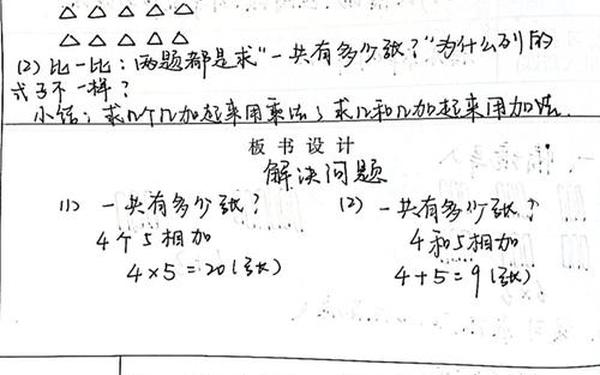 (2) 比一比：两题都是求“一共有多少个张？”为什么列的
式子不一样？
小结：求几个几加起来用乘法；求几和几加起来用加法.
板书设计
解决问题
(1) 一共有多少张？ (2) 一共有多少张？
4个5相加 4和5相加
4×5=20(张) 4+5=9(张)